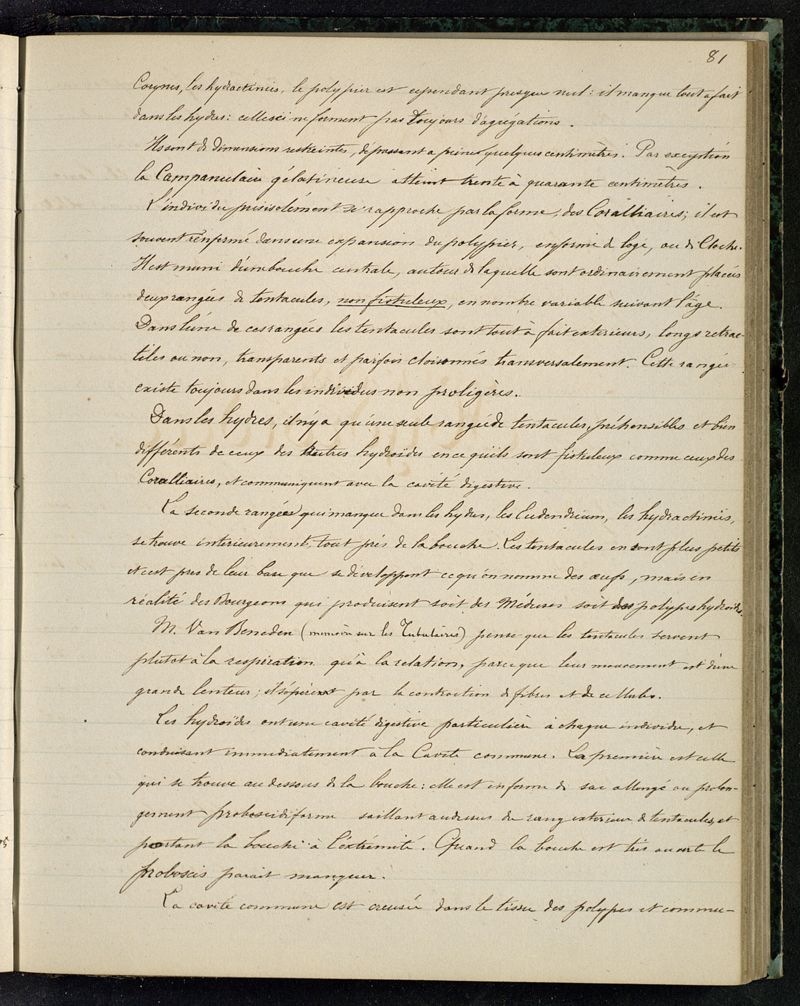 81
Corynes, les hydractinies, le polypier est cependant presque nul : il manque tout à fait
dans les hydres : celles-ci ne forment pas toujours d'agrégations.
Ils sont de dimensions restreintes, dépassant à peine quelques centimètres. Par exception
la Campanulaire gélatineuse atteint trente à quarante centimètres.
L'individu pris isolément se rapproche par la forme, des Coralliaires ; il est
souvent renfermé dans une expansion du polypier, en forme de loge, ou de Cloche.
Il est muni d'une bouche centrale, autour de laquelle sont ordinairement placés
deux rangées de tentacules, non fistuleux, en nombre variable suivant l'âge.
Dans l'une de ces rangées les tentacules sont tout à fait extérieurs, longs rétrac-
tiles ou non, transparents et parfois cloisonnés transversalement. Cette rangée
existe toujours dans les individus non proligères.
Dans les hydres, il n'y a qu'une seule rangée de tentacules, préhensibles et bien
différents de ceux des Autres hydroïdes en ce qu'ils sont fistuleux comme ceux des
Coralliaires, et communiquent avec la cavité digestive.
La seconde rangée qui manque dans les hydres, les Eudendrium, les hydractinies,
se trouve intérieurement, tout près de la bouche. Les tentacules en sont plus petits
et c'est près de leur base que se développent ce qu'on nomme des œufs, mais en
réalité des Bourgeons qui produisent soit des Méduses soit des polypes hydroïdes.
M. Van Beneden (mémoire sur les Tubulaires) pense que les tentacules servent
plutôt à la respiration qu'à la relation, parce que leur mouvement est d'une
grande lenteur ; il s'opère par la contraction de fibres et de cellules.
Les hydroïdes ont une cavité digestive particulière à chaque individu, et
conduisant immédiatement à la Cavité commune. La première est celle
qui se trouve au dessous de la bouche : elle est en forme de sac allongé ou prolon-
gement proboscidiforme saillant au dessus du rang extérieur de tentacules, et
portant la bouche à l'extrémité. Quand la bouche est très ouverte le
proboscis parait manquer.
La cavité commune est creusée dans le tissu des polypes et commu-